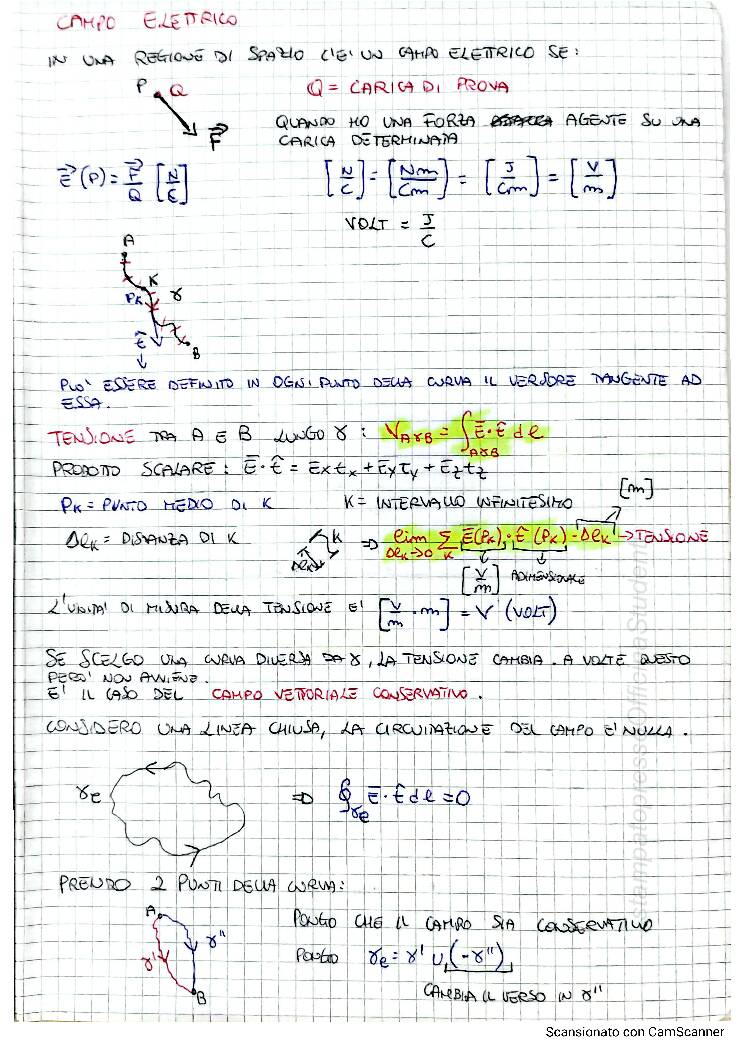 CAMPO ELETTRICO
IN UNA REGIONE DI SPAZIO C'E' UN CAMPO ELETTRICO SE:
P Q
Q = CARICA DI PROVA
F
QUANDO HO UNA FORZA AGENTE SU UNA
CARICA DETERMINATA
E (P) = F/Q [N/C]
[N/C] = [Nm/Cm] = [J/Cm] = [V/m]
VOLT = J/C
A
K
PK γ
t̂
B
PUO' ESSERE DEFINITO IN OGNI PUNTO DELLA CURVA IL VERSORE TANGENTE AD
ESSA.
TENSIONE TRA A E B LUNGO γ : V_AγB = ∫_AγB E̅·t̂ dl
PRODOTTO SCALARE : E̅·t̂ = Ex tx + Ey ty + Ez tz
PK = PUNTO MEDIO DI K K = INTERVALLO INFINITESIMO [m]
ΔlK = DISTANZA DI K
K
ΔlK
=> lim ΔlK→0 Σ_K E̅(PK)·t̂(PK)·ΔlK → TENSIONE
[V/m] ADIMENSIONALE
L'UNITA' DI MISURA DELLA TENSIONE E' [V/m · m] = V (VOLT)
SE SCELGO UNA CURVA DIVERSA DA γ, LA TENSIONE CAMBIA. A VOLTE QUESTO
PERO' NON AVVIENE.
E' IL CASO DEL CAMPO VETTORIALE CONSERVATIVO.
CONSIDERO UNA LINEA CHIUSA, LA CIRCUITAZIONE DEL CAMPO E' NULLA.
γe => ∮_γe E̅·t̂ dl = 0
PRENDO 2 PUNTI DELLA CURVA:
A
γ' γ''
B
PONGO CHE IL CAMPO SIA CONSERVATIVO
PONGO γe = γ' ∪ (-γ'')
CAMBIA IL VERSO IN γ''
StampatopressoOfficinaStudenti
Scansionato con CamScanner